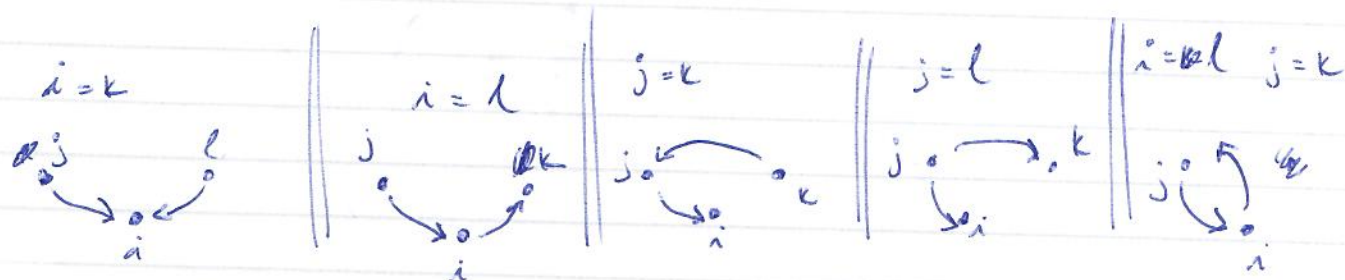 i = k
j l
i
i = l
j k
i
j = k
j k
i
j = l
j k
i
i = l j = k
j
i